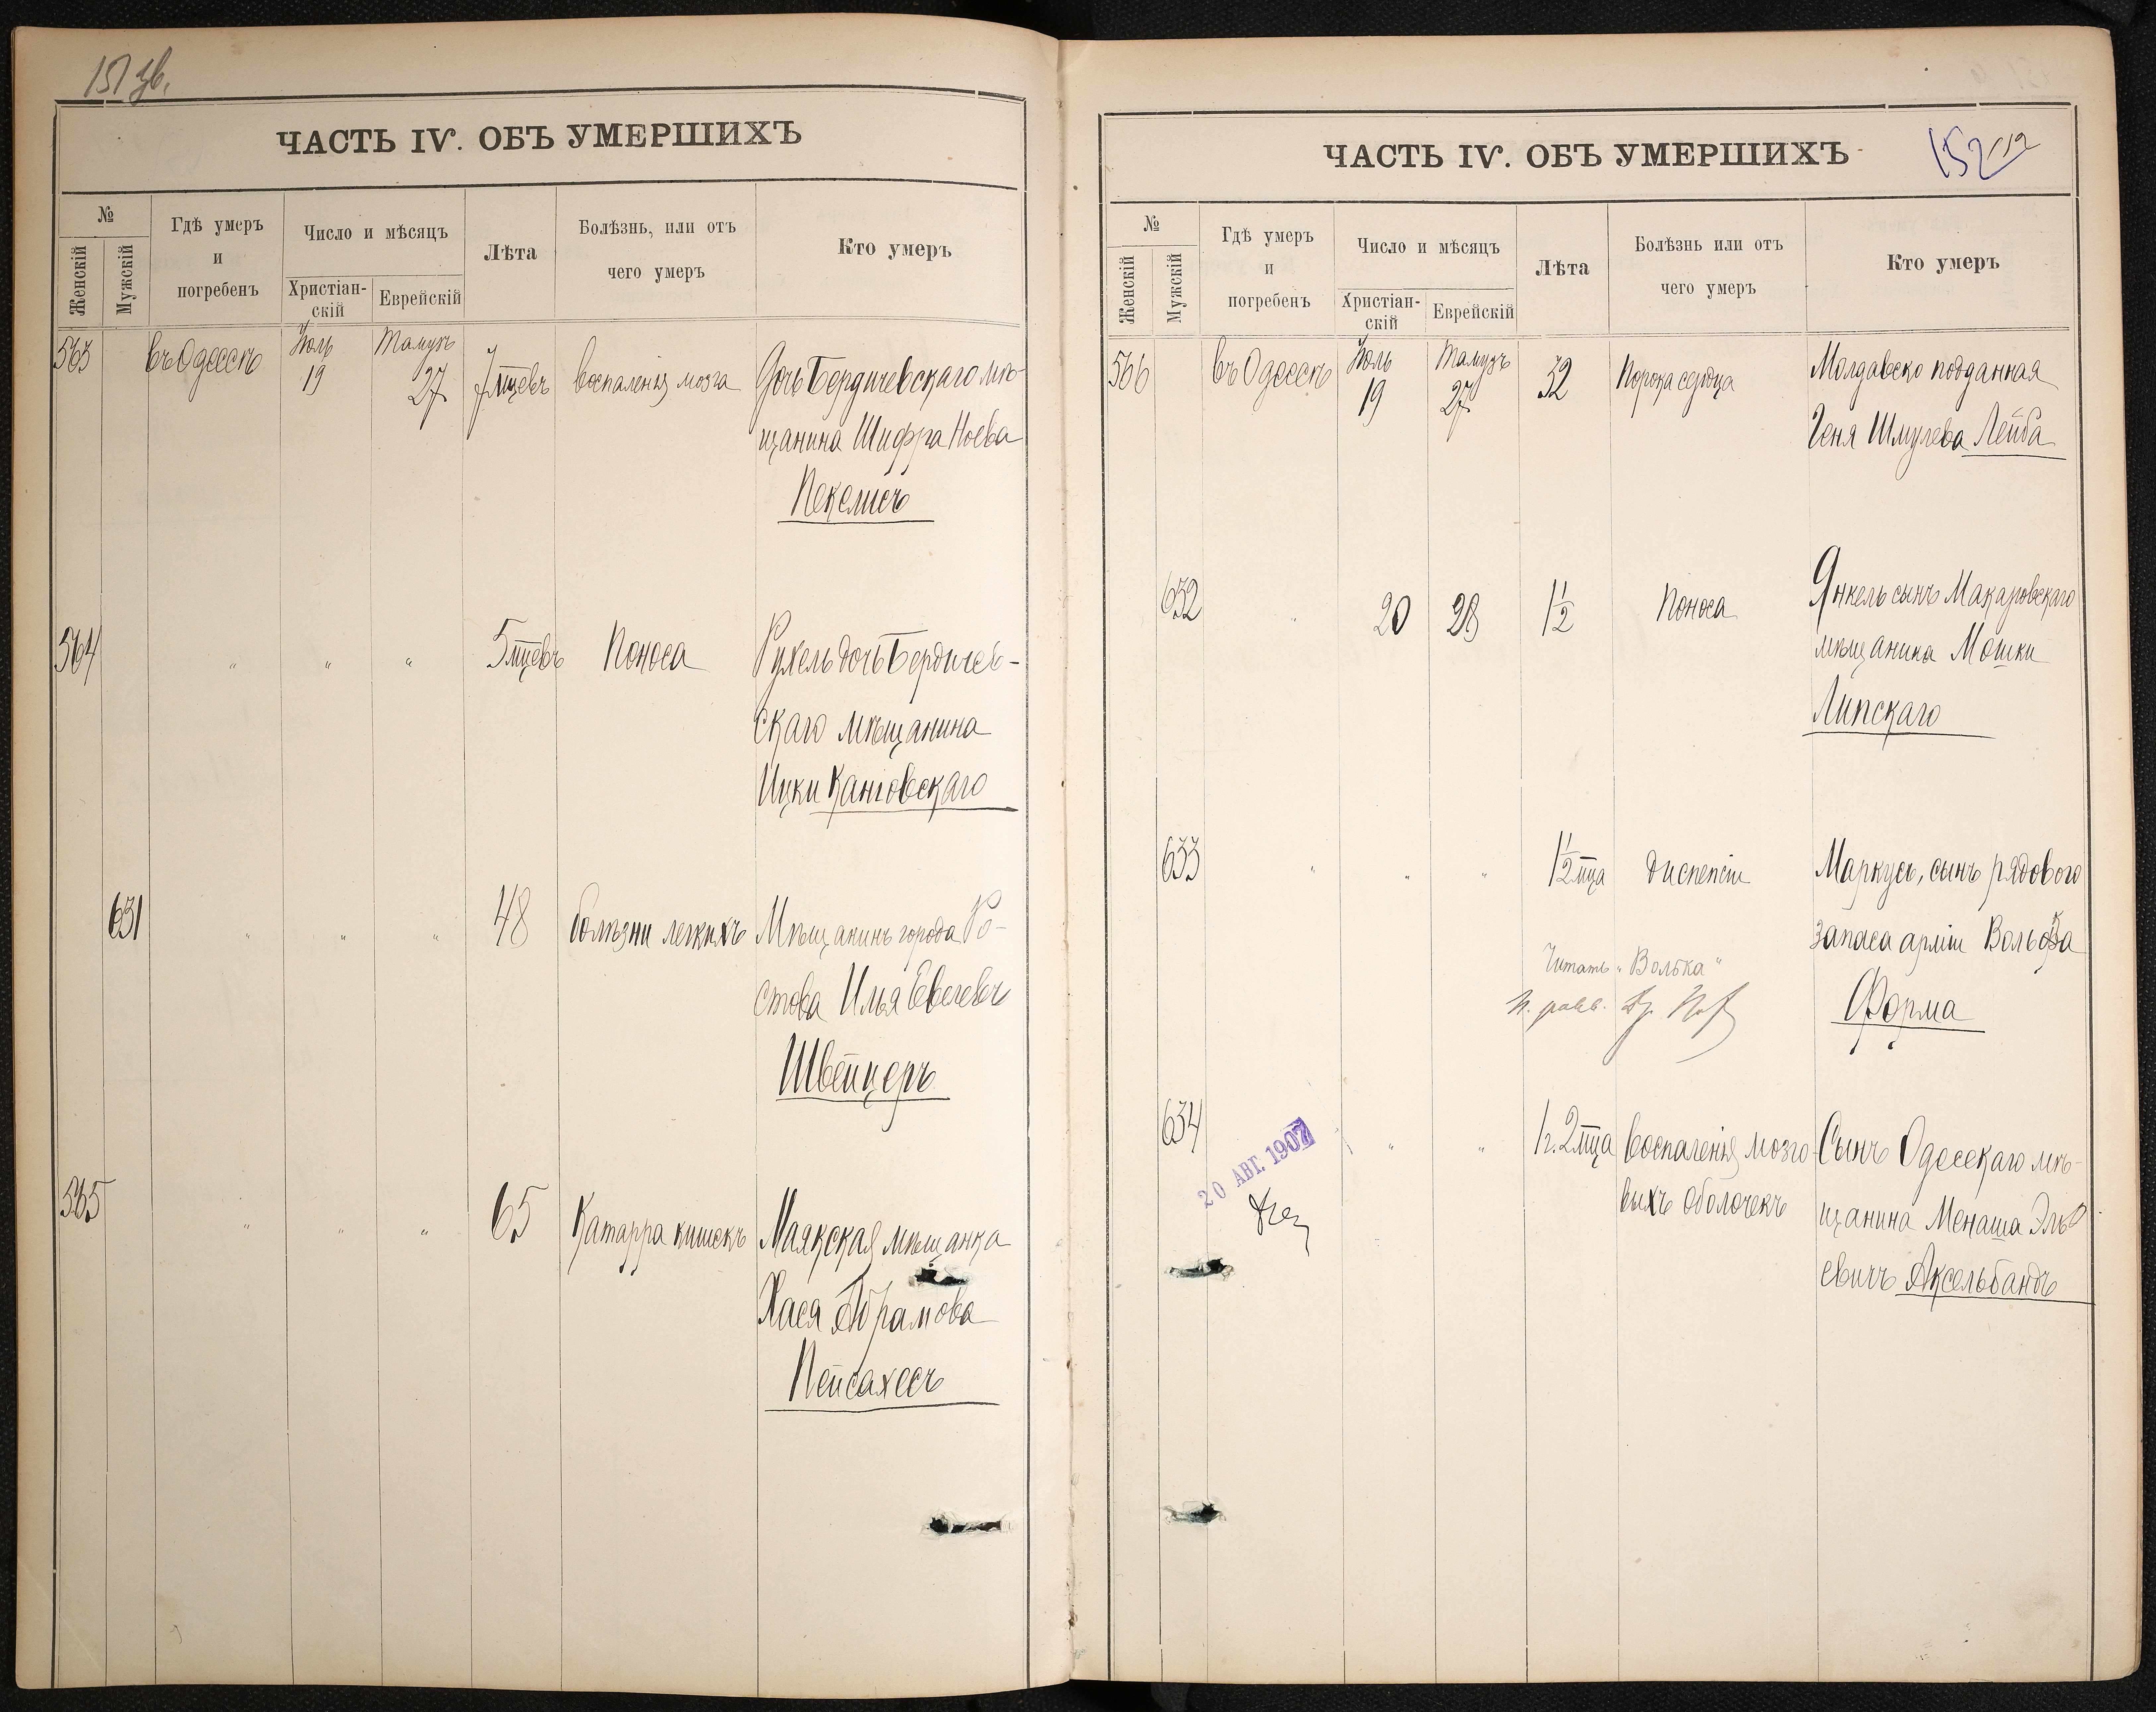 151 зв.
ЧАСТЬ IV. ОБЪ УМЕРШИХЪ
№
Женскій
Мужскій
Гдѣ умеръ
и
погребенъ
Число и мѣсяцъ
Христіан-
скій
Еврейскій
Лѣта
Болѣзнь, или отъ
чего умеръ
Кто умеръ
563 въ Одессѣ Іюль 19 Тамузъ 27 7 мцевъ воспаленія мозга Дочь Бердичевскаго мѣ-
щанина Шифра Ноева
Пекелисъ
564 " " " 5 мцевъ Поноса Рухель дочь Бердичев-
скаго мѣщанина
Ицки Каневскаго
631 " " " 48 болѣзни легкихъ Мѣщанинъ города Ро-
стова Илья
Швейцеръ
565 " " " 65 Катарра кишекъ Маякская мѣщанка
Хася Абрамова
Пейсахесъ
ЧАСТЬ IV. ОБЪ УМЕРШИХЪ
152
112
№
Женскій
Мужскій
Гдѣ умеръ
и
погребенъ
Число и мѣсяцъ
Христіан-
скій
Еврейскій
Лѣта
Болѣзнь или отъ
чего умеръ
Кто умеръ
566 въ Одессѣ Іюль 19 Тамузъ 27 32 Порока сердца Молдавско подданная
Геня Шмулева Лейба
632 " 20 28 1½ Поноса Янкель сынъ Макаровскаго
мѣщанина Мошки
Липскаго
633 " " " 1½ мца диспепсіи Маркусъ, сынъ рядового
запаса арміи
Читать "Волька"
Форма
634 " " 1 г. 2 мца воспаленія мозго- Сынъ Одесскаго мѣ-
выхъ оболочекъ щанина Менаша Эль-
евичъ Аксельбандъ
20 АВГ. 1907